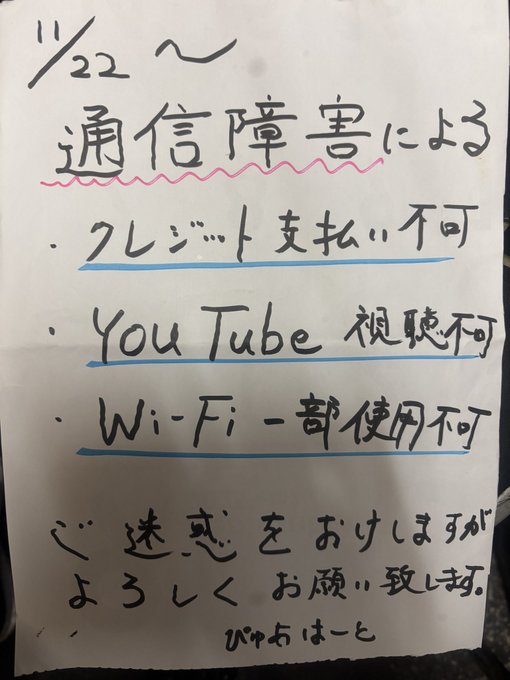 11/22 〜
通信障害による
・クレジット支払い不可
・YouTube 視聴不可
・Wi-Fi 一部使用不可
ご迷惑をおけしますが
よろしくお願い致します。
ぴゅあはーと